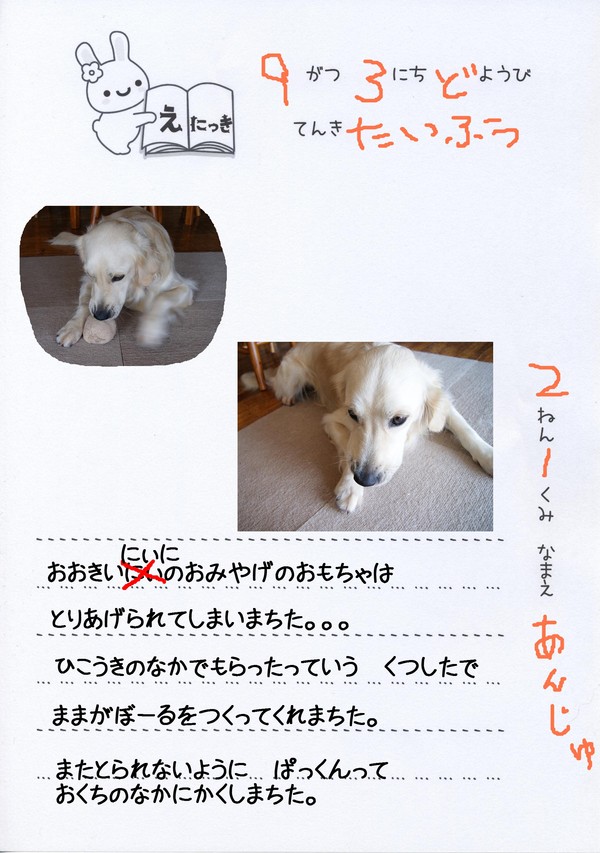 えにっき
9がつ3にちどようび
てんきたいふう
2ねん1くみ なまえ あんじゅ
にいに
おおきいにいのおみやげのおもちゃは
とりあげられてしまいまちた。。。
ひこうきのなかでもらったっていう くつしたで
ままがぼーるをつくってくれまちた。
またとられないように ぱっくんって
おくちのなかにかくしまちた。